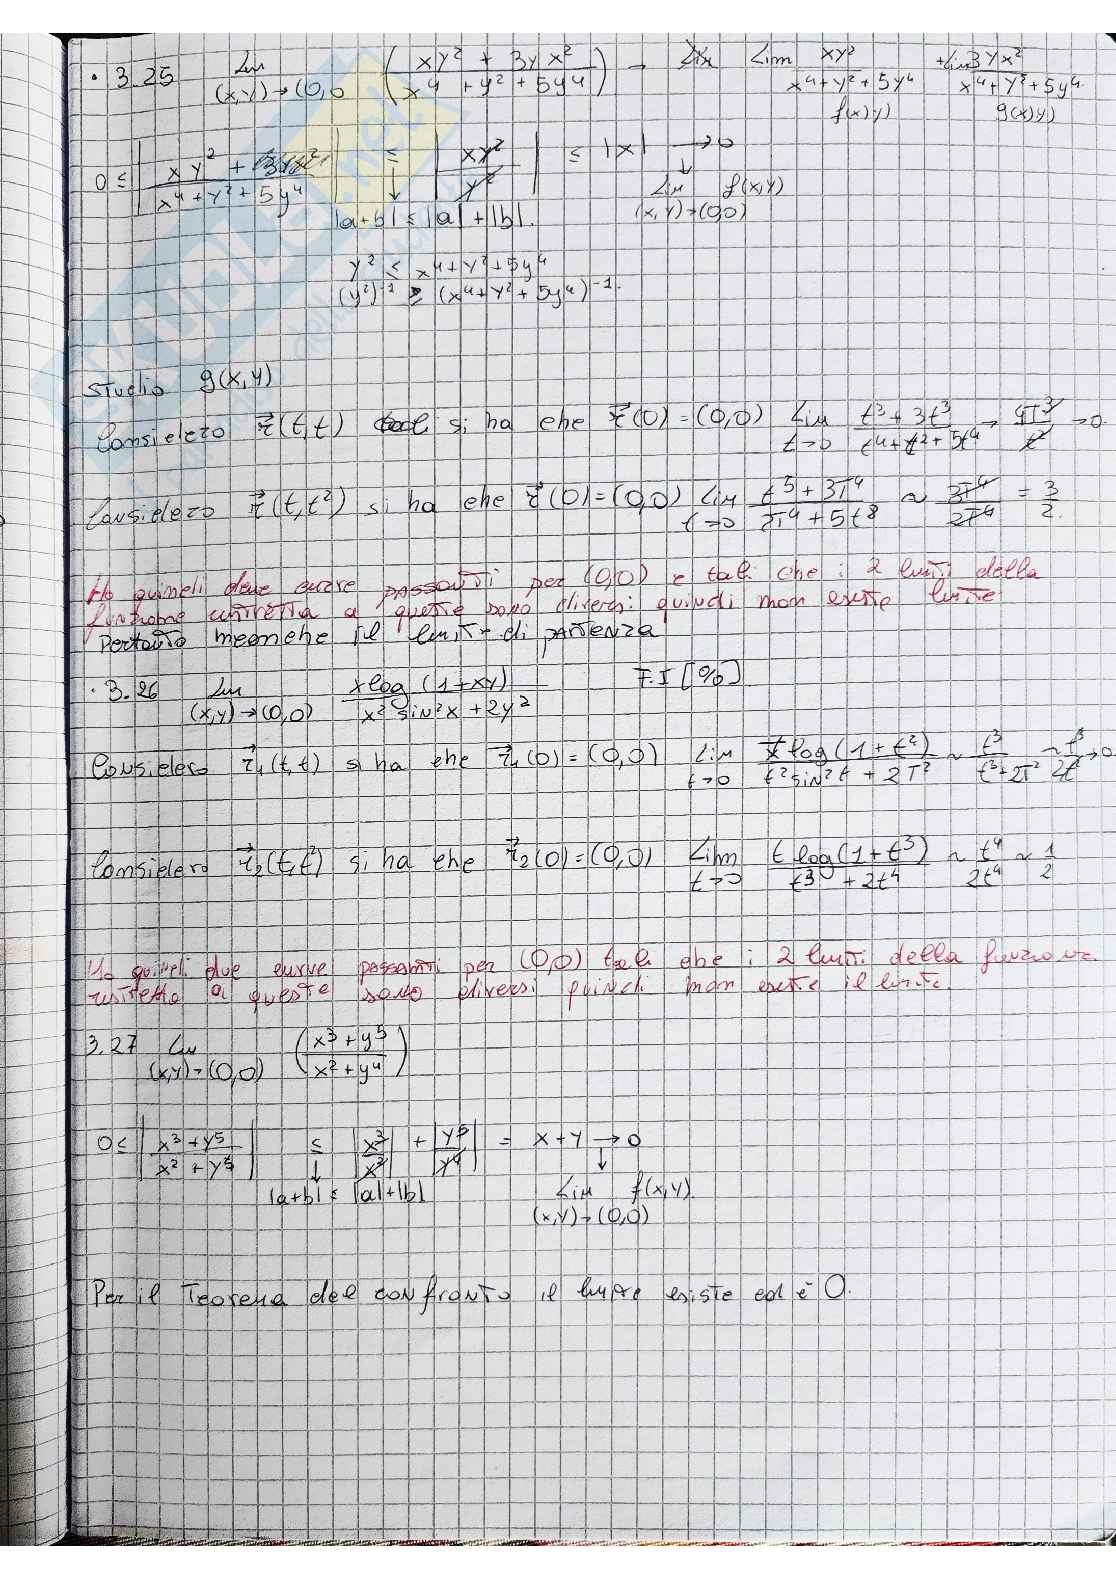 · 3.25 Lim (x,y)→(0,0 ( (xy² + 3yx²) / (x⁴ + y² + 5y⁴) ) → Lim xy² / (x⁴+y²+5y⁴) + Lim 3yx² / (x⁴+y²+5y⁴)
f(x,y) g(x,y)
0 ≤ | xy² / (x⁴+y²+5y⁴) | ≤ | xy² / y² | ≤ |x| → 0
|a+b| ≤ |a|+|b|. Lim (x,y)→(0,0) f(x,y)
y² ≤ x⁴+y²+5y⁴
(y²)⁻¹ ≥ (x⁴+y²+5y⁴)⁻¹.
Studio g(x,y)
Considero r⃗(t,t) si ha che r⃗(0) = (0,0) Lim t→0 (t³+3t³) / (t⁴+t²+5t⁴) → 4t³ / t² → 0.
Considero r⃗(t,t²) si ha che r⃗(0) = (0,0) Lim t→0 (t⁵+3t⁴) / (2t⁴+5t⁸) ~ 3t⁴ / 2t⁴ = 3/2.
Ho quindi due curve passanti per (0,0) e tali che i 2 limiti della
funzione ristretta a queste sono diversi: quindi non esiste limite
Pertanto neanche il limite di partenza
· 3.26 Lim (x,y)→(0,0) xlog(1+xy) / (x² sin²x + 2y²) F.I [0/0]
Considero r⃗₁(t,t) si ha che r⃗₁(0) = (0,0) Lim t→0 t log(1+t²) / (t² sin²t + 2t²) ~ t³ / (t³+2t²) ~ t³ / 2t² → 0
Considero r⃗₂(t,t²) si ha che r⃗₂(0) = (0,0) Lim t→0 t log(1+t³) / (t³ + 2t⁴) ~ t⁴ / 2t⁴ ~ 1/2
Ho quindi due curve passanti per (0,0) tali che i 2 limiti della funzione
ristretta a queste sono diversi quindi non esiste il limite.
3.27 Lim (x,y)→(0,0) ( (x³+y⁵) / (x²+y⁴) )
0 ≤ | (x³+y⁵) / (x²+y⁴) | ≤ | x³ / x² | + | y⁵ / y⁴ | = x+y → 0
|a+b| ≤ |a|+|b| Lim (x,y)→(0,0) f(x,y)
Per il Teorema del confronto il limite esiste ed è 0.